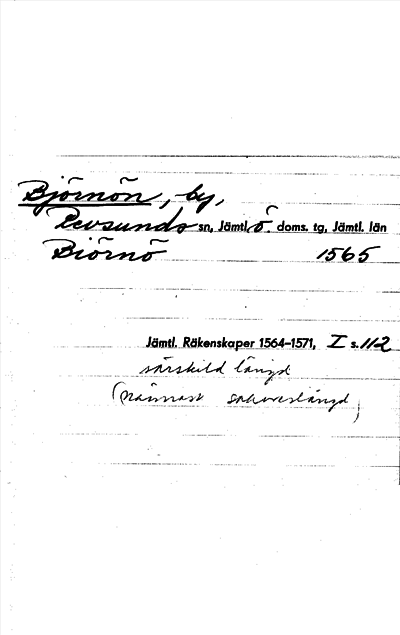 Björnön, by,
Revsunds sn, Jämtl. ö. doms. tg, Jämtl. län
Biörnö 1565
Jämtl. Räkenskaper 1564-1571, I s. 112
särskild längd
(närmast saköreslängd)